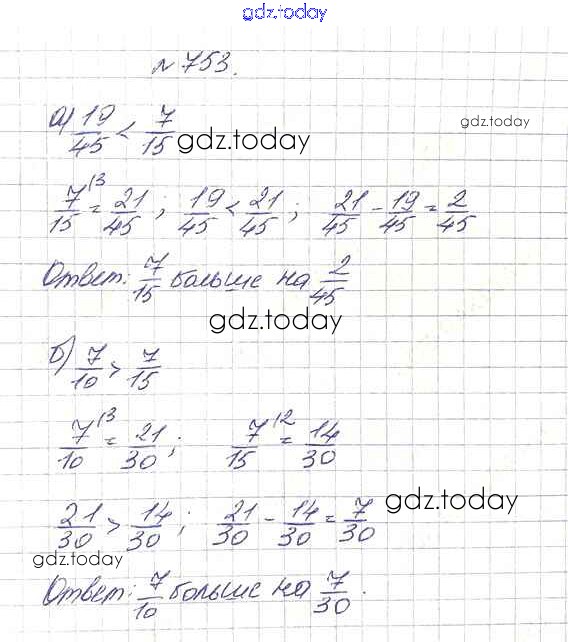 gdz.today
№ 753.
а) 19/45 < 7/15 gdz.today gdz.today
7/15 ⁽³ = 21/45 ; 19/45 < 21/45 ; 21/45 - 19/45 = 2/45
Ответ: 7/15 больше на 2/45
gdz.today
б) 7/10 > 7/15
7/10 ⁽³ = 21/30 ; 7/15 ⁽² = 14/30
21/30 > 14/30 ; 21/30 - 14/30 = 7/30 gdz.today
gdz.today
Ответ: 7/10 больше на 7/30 .